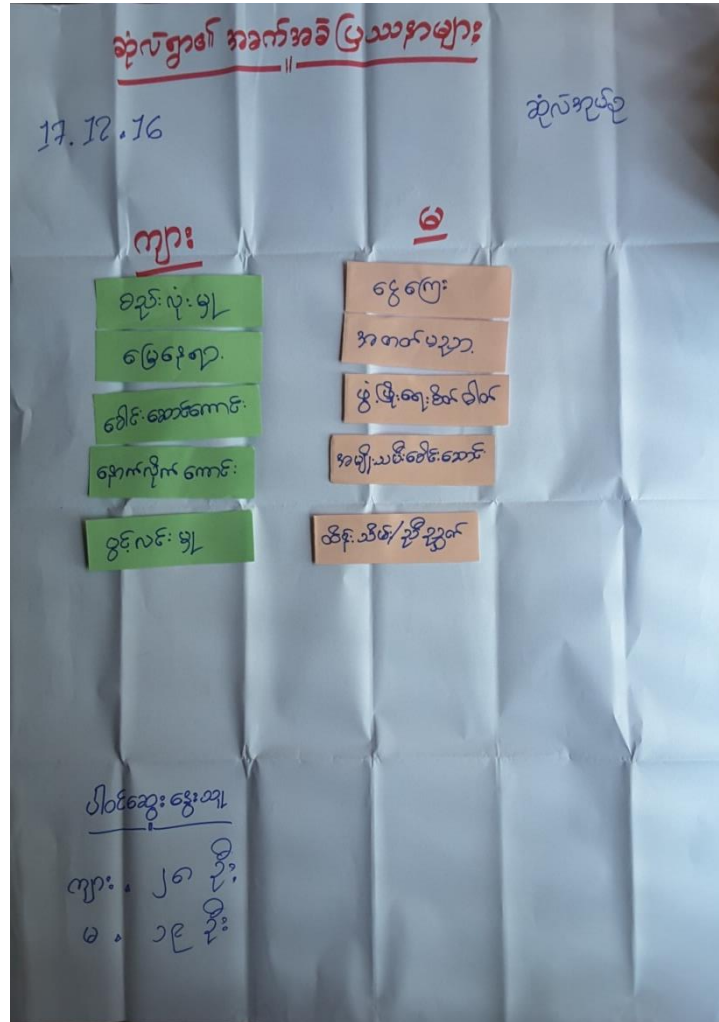 ဆုံလ်ရွာ၏ အခက်အခဲ ပြဿနာများ
17.12.16
ဆုံလ်အုပ်စု
ကျား
မ
စည်းလုံးမှု
မြေနေရာ
ခေါင်းဆောင်ကောင်း
နောက်လိုက်ကောင်း
ပွင့်လင်းမှု
ငွေကြေး
အတတ်ပညာ
ဖွံ့ဖြိုးရေးစိတ်ဓါတ်
အမျိုးသမီးခေါင်းဆောင်
ထိန်းသိမ်း/ညီညွတ်
ပါဝင်ဆွေးနွေးသူ
ကျား . ၂၈ ဦး
မ . ၁၉ ဦး